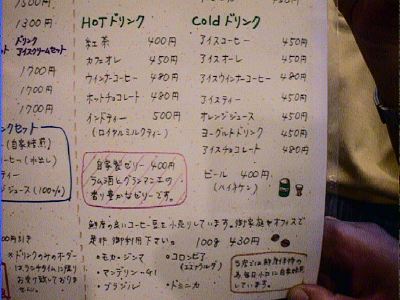 1500円
1300円
ドリンク
アイスクリームセット
1700円
1700円
1700円
ンクセット
(自家焙煎)
ーヒー(水出し)
ティー
ジュース(100%)
HOTドリンク
紅茶 400円
カフェオレ 450円
ウインナコーヒー 480円
ホットチョコレート 480円
インドティー 500円
(ロイヤルミルクティー)
自家製ゼリー 400円
ラム酒とグランマニエの
香り豊かなゼリーです。
Coldドリンク
アイスコーヒー 450円
アイスオーレ 450円
アイスウインナコーヒー 480円
アイスティー 450円
オレンジジュース 450円
ヨーグルトドリンク 450円
アイスチョコレート 480円
ビール 400円
(ハイネケン)
鮮度の良いコーヒー豆も小売りしています。御家庭やオフィスで
是非御利用下さい。 100g 430円
・モカ・ジンマ
・コロンビア
・マンデリン・G1
・ブラジル
・ドミニカ
00円引き
*ドリンクのみのオーダー
はランチタイムに限り
お受け致しておりま
せん。
当店では鮮度保持の
為毎日小口に自家焙煎
しています。